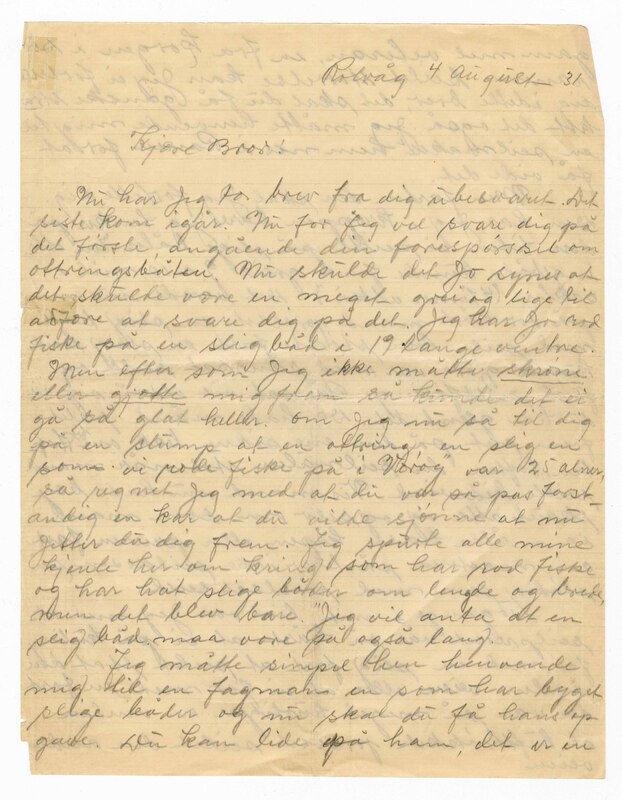 Rolvåg 4 August 31
Kjære Bror!
Nu har Jeg to brev fra dig ubesvaret. Det
siste kom igår. Nu for Jeg vel svare dig på
det förste, angående din forespörssel om
ottringsbåten. Nu skulde det Jo synes at
det skulde være en meget grei og lige til
at svare dig på det. Jeg har Jo rod
fiske på en slig båd i 19 lange ventre.
Men efter som Jeg ikke måtte skrone
eller gjette mig frem så kunde det ei
gå på glat heller. om Jeg nu så til dig
på en stump af en ottring, en slig en
som vi rode fiske på i Væröy var 25 alner,
så regnet Jeg med at du var så pas forst-
andig en kar at du vilde sjönne at nu
getter du dig frem. Jeg spurte alle mine
kjente her om kring som har rod fiske
og har hat slige båder om lengde og brede,
men det blev bare. "Jeg vil anta at en
slig båd maa være så også lang.
Jeg måtte simpel hen henvende
mig til en fagman en som har bygget
slige båder og nu skal du få hans op
gave. Du kan lide på ham, det er en